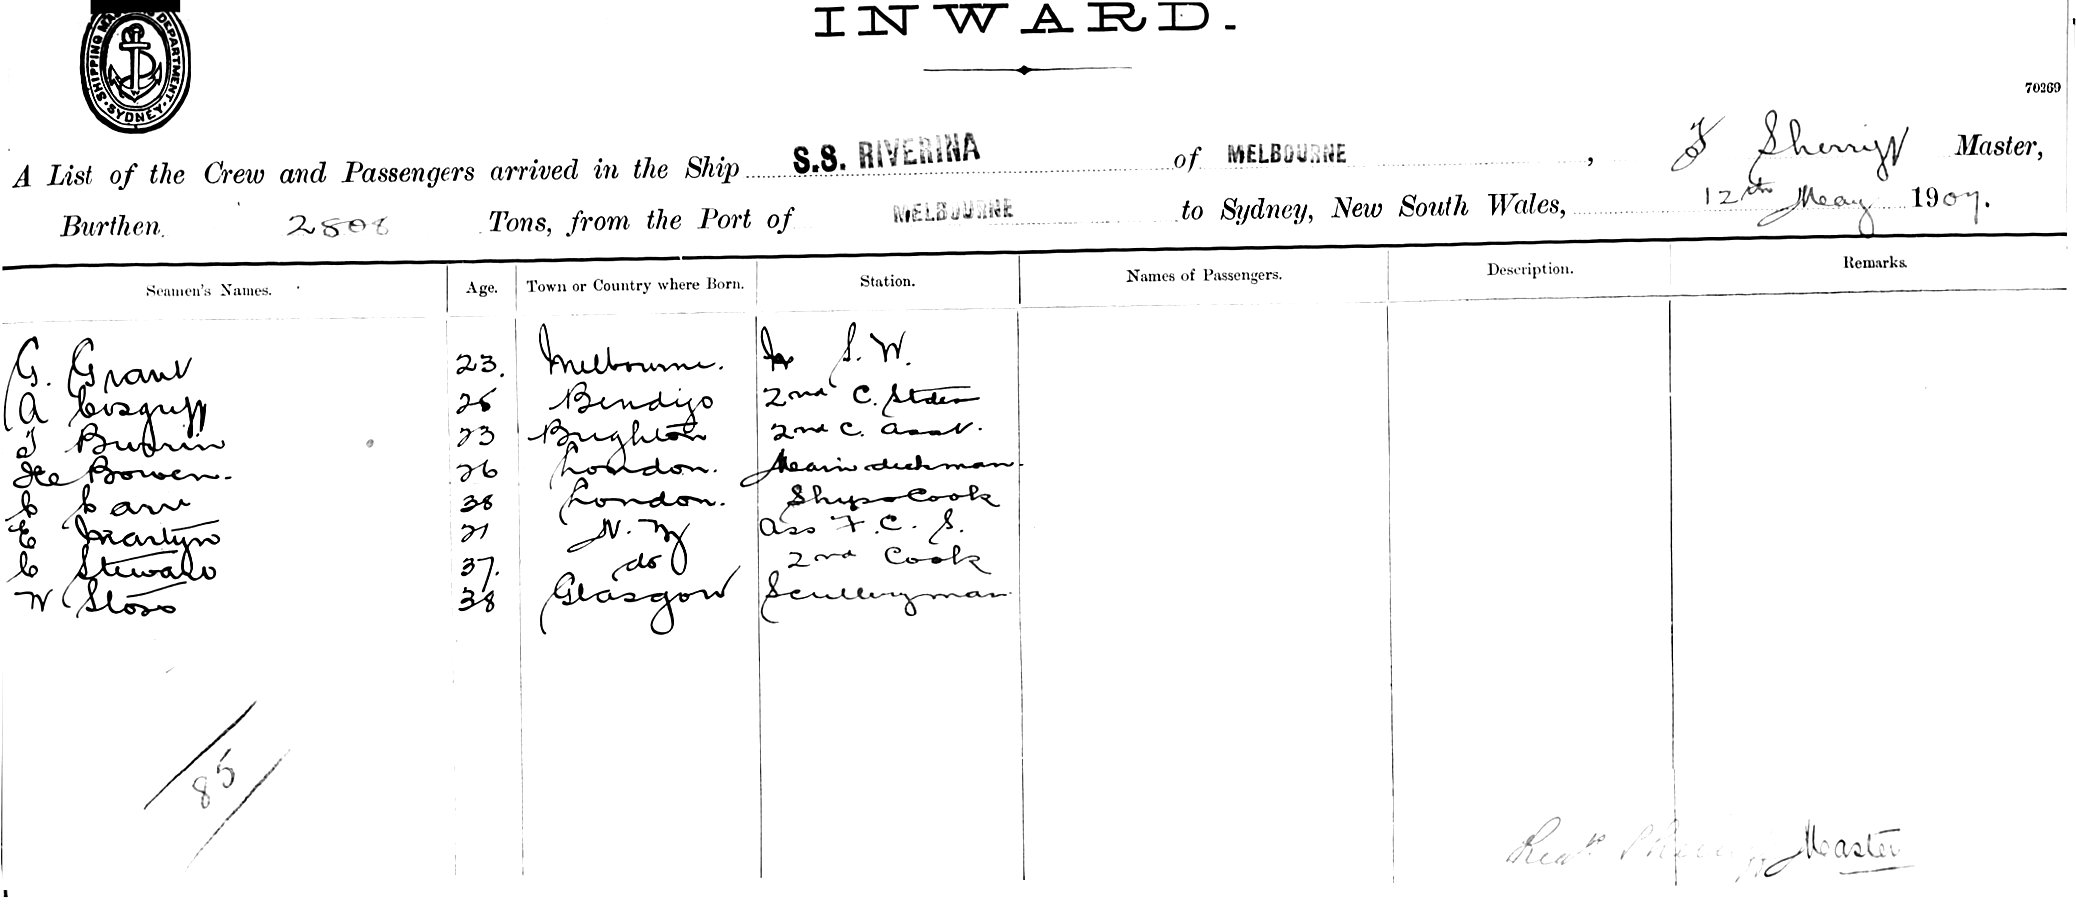 INWARD.
SHIPPING MASTER'S DEPARTMENT. SYDNEY
70269
A List of the Crew and Passengers arrived in the Ship S.S. RIVERINA of MELBOURNE, Master,
Burthen 2808 Tons, from the Port of MELBOURNE to Sydney, New South Wales, 12th May 1907.
Seamen's Names. Age. Town or Country where Born. Station. Names of Passengers. Description. Remarks.
G. Grant 23. Melbourne. S. W.
A Cosgriff 25 Bendigo 2nd C.
23 Brighton 2nd C. Asst.
Bowen. 26 London. Main deckman.
C Carr 38 London. Ships Cook
E Martyn 21 N. Z Ass F. C. S.
C Steward 37. do 2nd Cook
W Sloss 38 Glasgow Sculleryman
85
Master